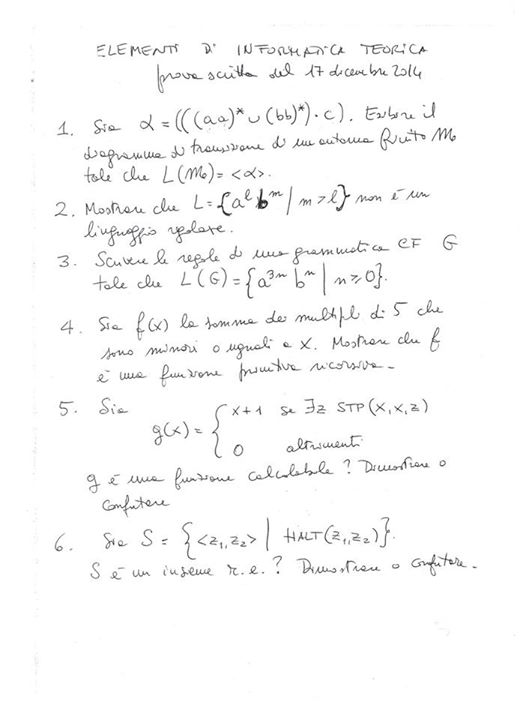 ELEMENTI DI INFORMATICA TEORICA
prova scritta del 17 dicembre 2014
1. Sia α = (((aa)* ∪ (bb)*)·c). Esibire il
diagramma di transizione di un automa finito M₀
tale che L(M₀) = <α>.
2. Mostrare che L = {aˡ bᵐ | m > l} non è un
linguaggio regolare.
3. Scrivere le regole di una grammatica CF G
tale che L(G) = {a³ⁿ bⁿ | n ≥ 0}.
4. Sia f(x) la somma dei multipli di 5 che
sono minori o uguali a x. Mostrare che f
è una funzione primitiva ricorsiva.
5. Sia
g(x) = { x+1 se ∃z STP(x,x,z)
0 altrimenti
g è una funzione calcolabile? Dimostrare o
confutare
6. Sia S = {<z₁,z₂> | HALT(z₁,z₂)}.
S è un insieme r.e.? Dimostrare o confutare.